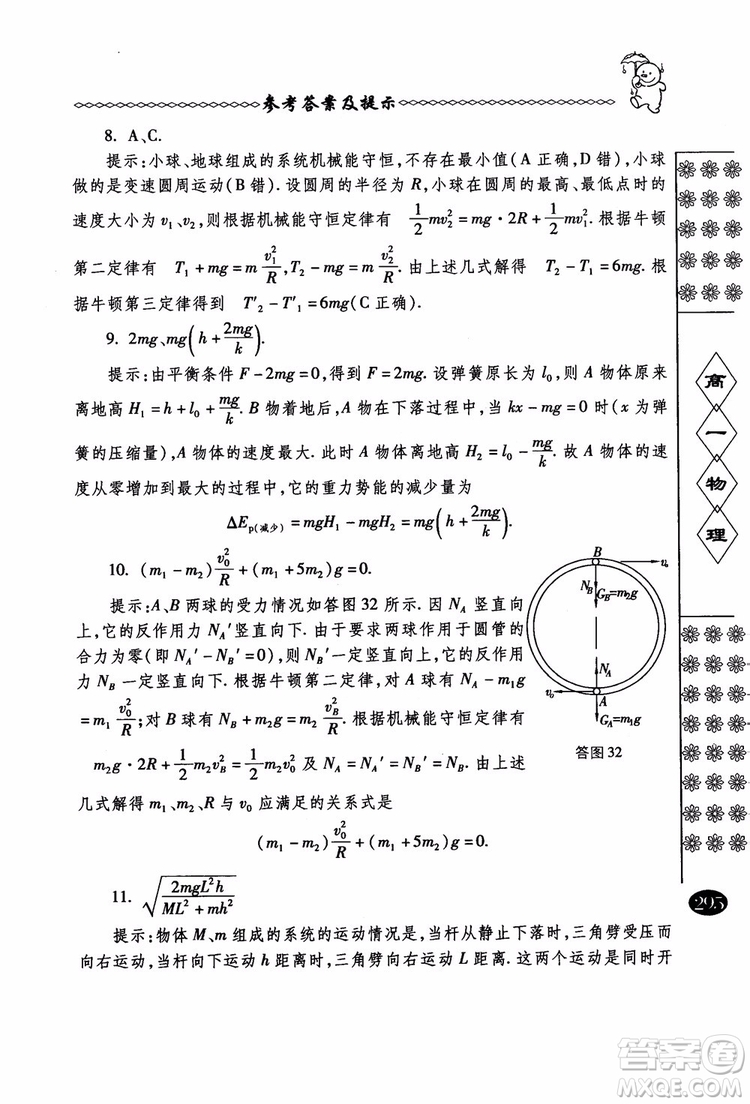 参考答案及提示
8. A、C.
提示:小球、地球组成的系统机械能守恒,不存在最小值(A 正确,D 错),小球
做的是变速圆周运动(B 错). 设圆周的半径为 R,小球在圆周的最高、最低点时的
速度大小为 v₁、v₂,则根据机械能守恒定律有 1/2 mv₂² = mg·2R + 1/2 mv₁². 根据牛顿
第二定律有 T₁ + mg = m v₁²/R, T₂ − mg = m v₂²/R. 由上述几式解得 T₂ − T₁ = 6mg. 根
据牛顿第三定律得到 T′₂ − T′₁ = 6mg(C 正确).
9. 2mg、mg(h + 2mg/k).
提示:由平衡条件 F − 2mg = 0,得到 F = 2mg. 设弹簧原长为 l₀,则 A 物体原来
离地高 H₁ = h + l₀ + mg/k. B 物着地后,A 物在下落过程中,当 kx − mg = 0 时(x 为弹
簧的压缩量),A 物体的速度最大. 此时 A 物体离地高 H₂ = l₀ − mg/k. 故 A 物体的速
度从零增加到最大的过程中,它的重力势能的减少量为
ΔEp(减少) = mgH₁ − mgH₂ = mg(h + 2mg/k).
10. (m₁ − m₂) v₀²/R + (m₁ + 5m₂)g = 0.
提示:A、B 两球的受力情况如答图 32 所示. 因 N_A 竖直向
上,它的反作用力 N_A′ 竖直向下. 由于要求两球作用于圆管的
合力为零(即 N_A′ − N_B′ = 0),则 N_B′ 一定竖直向上,它的反作用
力 N_B 一定竖直向下. 根据牛顿第二定律,对 A 球有 N_A − m₁g
= m₁ v₀²/R; 对 B 球有 N_B + m₂g = m₂ v_B²/R. 根据机械能守恒定律有
m₂g·2R + 1/2 m₂v_B² = 1/2 m₂v₀² 及 N_A = N_A′ = N_B′ = N_B. 由上述
几式解得 m₁、m₂、R 与 v₀ 应满足的关系式是
(m₁ − m₂) v₀²/R + (m₁ + 5m₂)g = 0.
B
v_B
N_B
G_B=m₂g
N_A
v₀
A
G_A=m₁g
答图 32
11. √(2mgL²h/(ML² + mh²))
提示:物体 M、m 组成的系统的运动情况是,当杆从静止下落时,三角劈受压而
向右运动,当杆向下运动 h 距离时,三角劈向右运动 L 距离. 这两个运动是同时开
高
一
物
理
295
答案圈
MXQE.COM